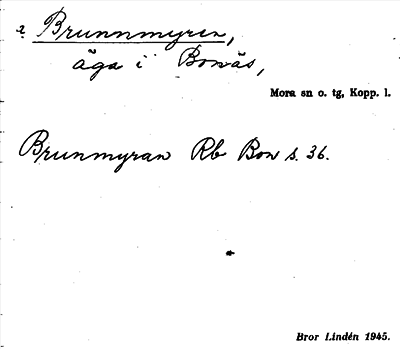 Brunnmyren,
äga i Bonäs,
Mora sn o. tg, Kopp. l.
Brunmyran Rb Bon s. 36.
Bror Lindén 1945.